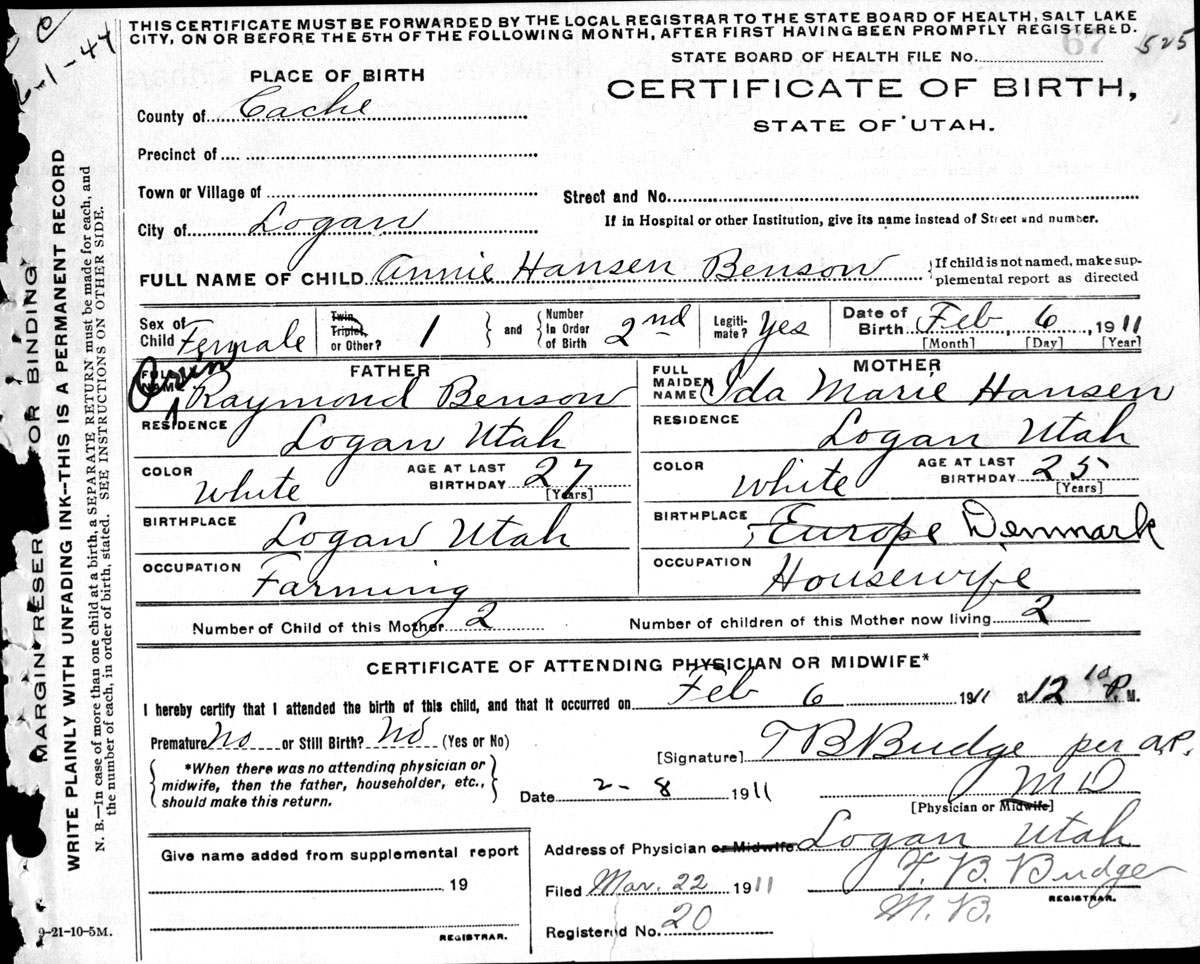 THIS CERTIFICATE MUST BE FORWARDED BY THE LOCAL REGISTRAR TO THE STATE BOARD OF HEALTH, SALT LAKE
CITY, ON OR BEFORE THE 5TH OF THE FOLLOWING MONTH, AFTER FIRST HAVING BEEN PROMPTLY REGISTERED.
525
STATE BOARD OF HEALTH FILE No.
PLACE OF BIRTH
CERTIFICATE OF BIRTH,
STATE OF UTAH.
County of Cache
Precinct of
Town or Village of
Street and No.
City of Logan
If in Hospital or other Institution, give its name instead of Street and number.
FULL NAME OF CHILD Annie Hansen Benson {If child is not named, make sup-
plemental report as directed
Sex of Child Female
Twin, Triplet, or Other? 1 } and { Number In Order of Birth 2nd
Legiti-mate? Yes
Date of Birth Feb, 6, 1911
[Month] [Day] [Year]
FATHER
FULL NAME Orvin Raymond Benson
RESIDENCE Logan Utah
COLOR White AGE AT LAST BIRTHDAY 27 [Years]
BIRTHPLACE Logan Utah
OCCUPATION Farming
MOTHER
FULL MAIDEN NAME Ida Marie Hansen
RESIDENCE Logan Utah
COLOR White AGE AT LAST BIRTHDAY 25 [Years]
BIRTHPLACE Europe Denmark
OCCUPATION Housewife
Number of Child of this Mother 2 Number of children of this Mother now living 2
CERTIFICATE OF ATTENDING PHYSICIAN OR MIDWIFE*
I hereby certify that I attended the birth of this child, and that it occurred on Feb 6 1911 at 12 10 P. M.
Premature No or Still Birth? No (Yes or No)
[Signature] T B Budge per a.P.
{ *When there was no attending physician or
midwife, then the father, householder, etc.,
should make this return. }
Date 2-8 1911 M D
[Physician or Midwife]
Give name added from supplemental report
19
REGISTRAR.
Address of Physician or Midwife Logan Utah
Filed Mar. 22 1911 T. B. Budge
REGISTRAR.
M. B.
Registered No. 20
9-21-10-5M.
MARGIN RESER FOR BINDING
WRITE PLAINLY WITH UNFADING INK—THIS IS A PERMANENT RECORD
N. B.—In case of more than one child at a birth, a SEPARATE RETURN must be made for each, and
the number of each, in order of birth, stated. SEE INSTRUCTIONS ON OTHER SIDE.